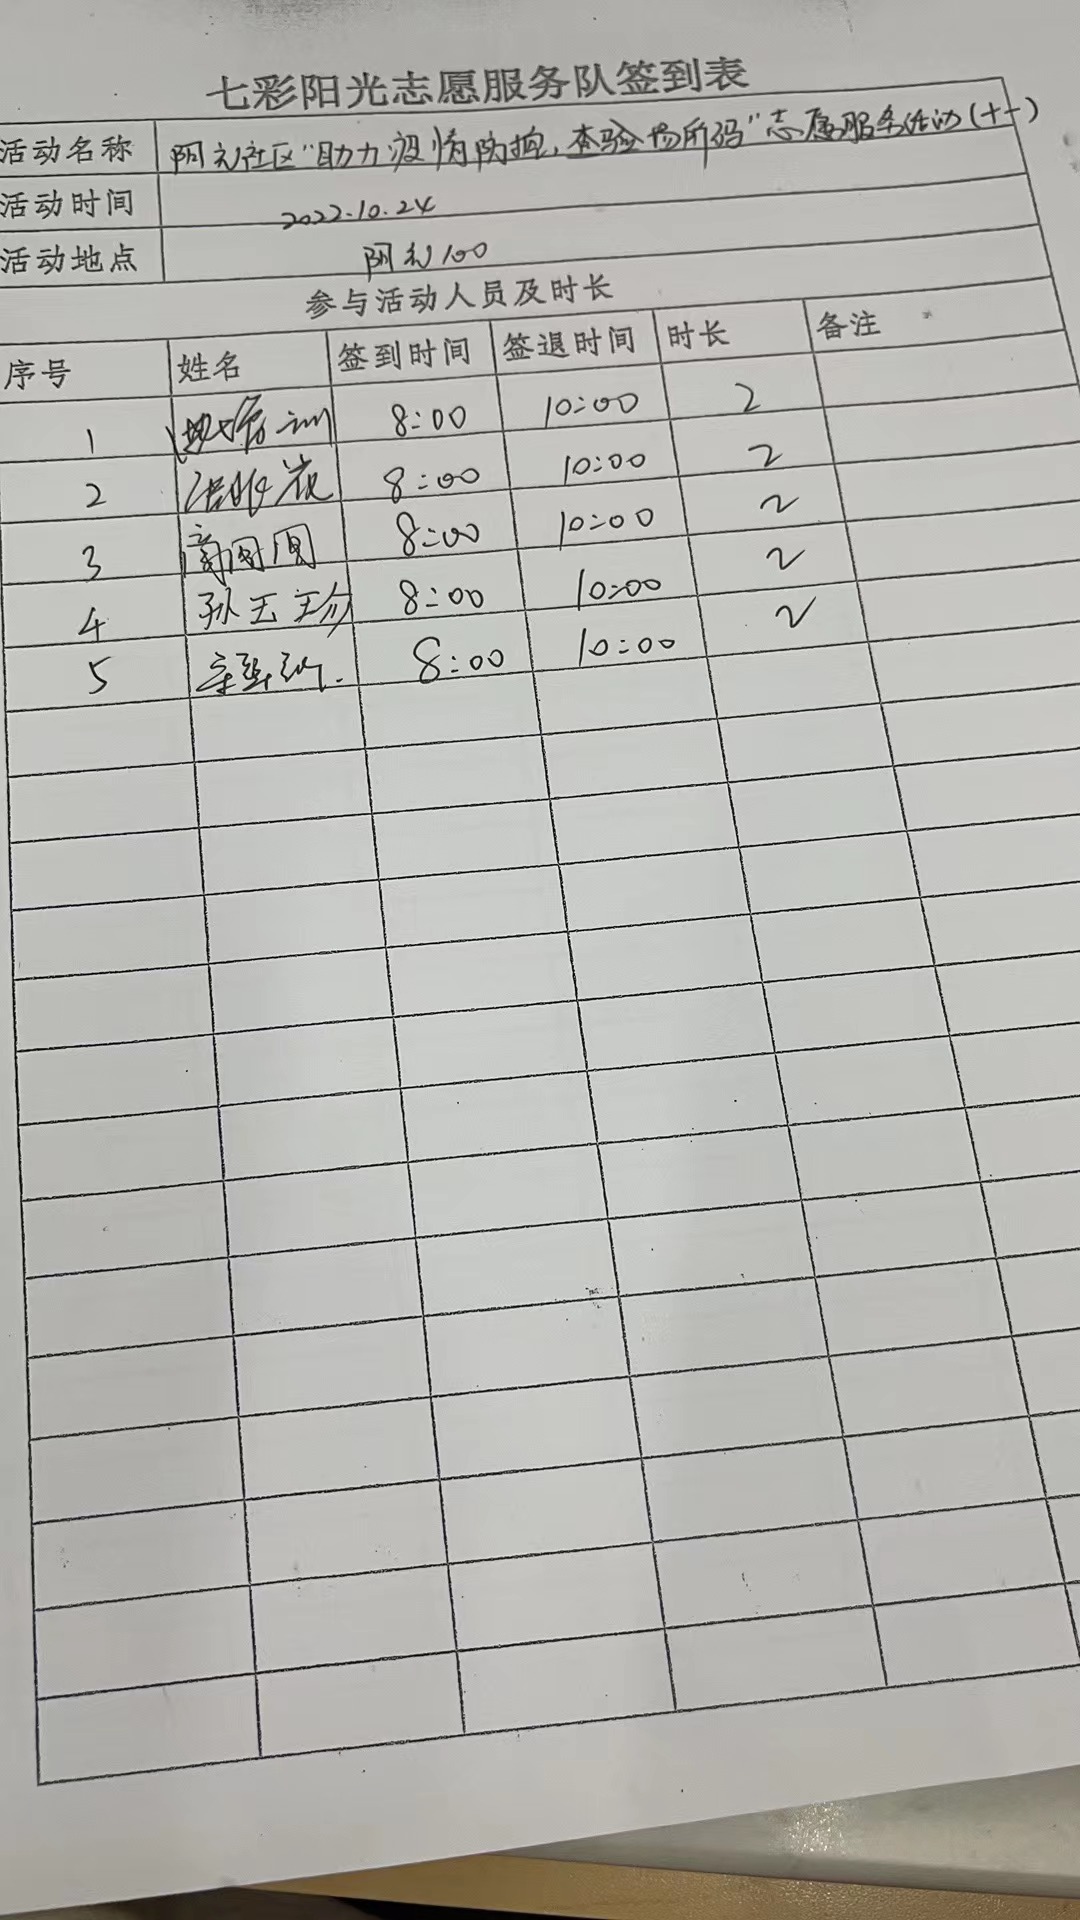 七彩阳光志愿服务队签到表
活动名称 社区"助力疫情防控,查验场所码"志愿服务活动(十一)
活动时间 2022.10.24
活动地点 100
参与活动人员及时长
序号 姓名 签到时间 签退时间 时长 备注
1 8:00 10:00 2
2 8:00 10:00 2
3 8:00 10:00 2
4 孙玉珍 8:00 10:00 2
5 8:00 10:00 2